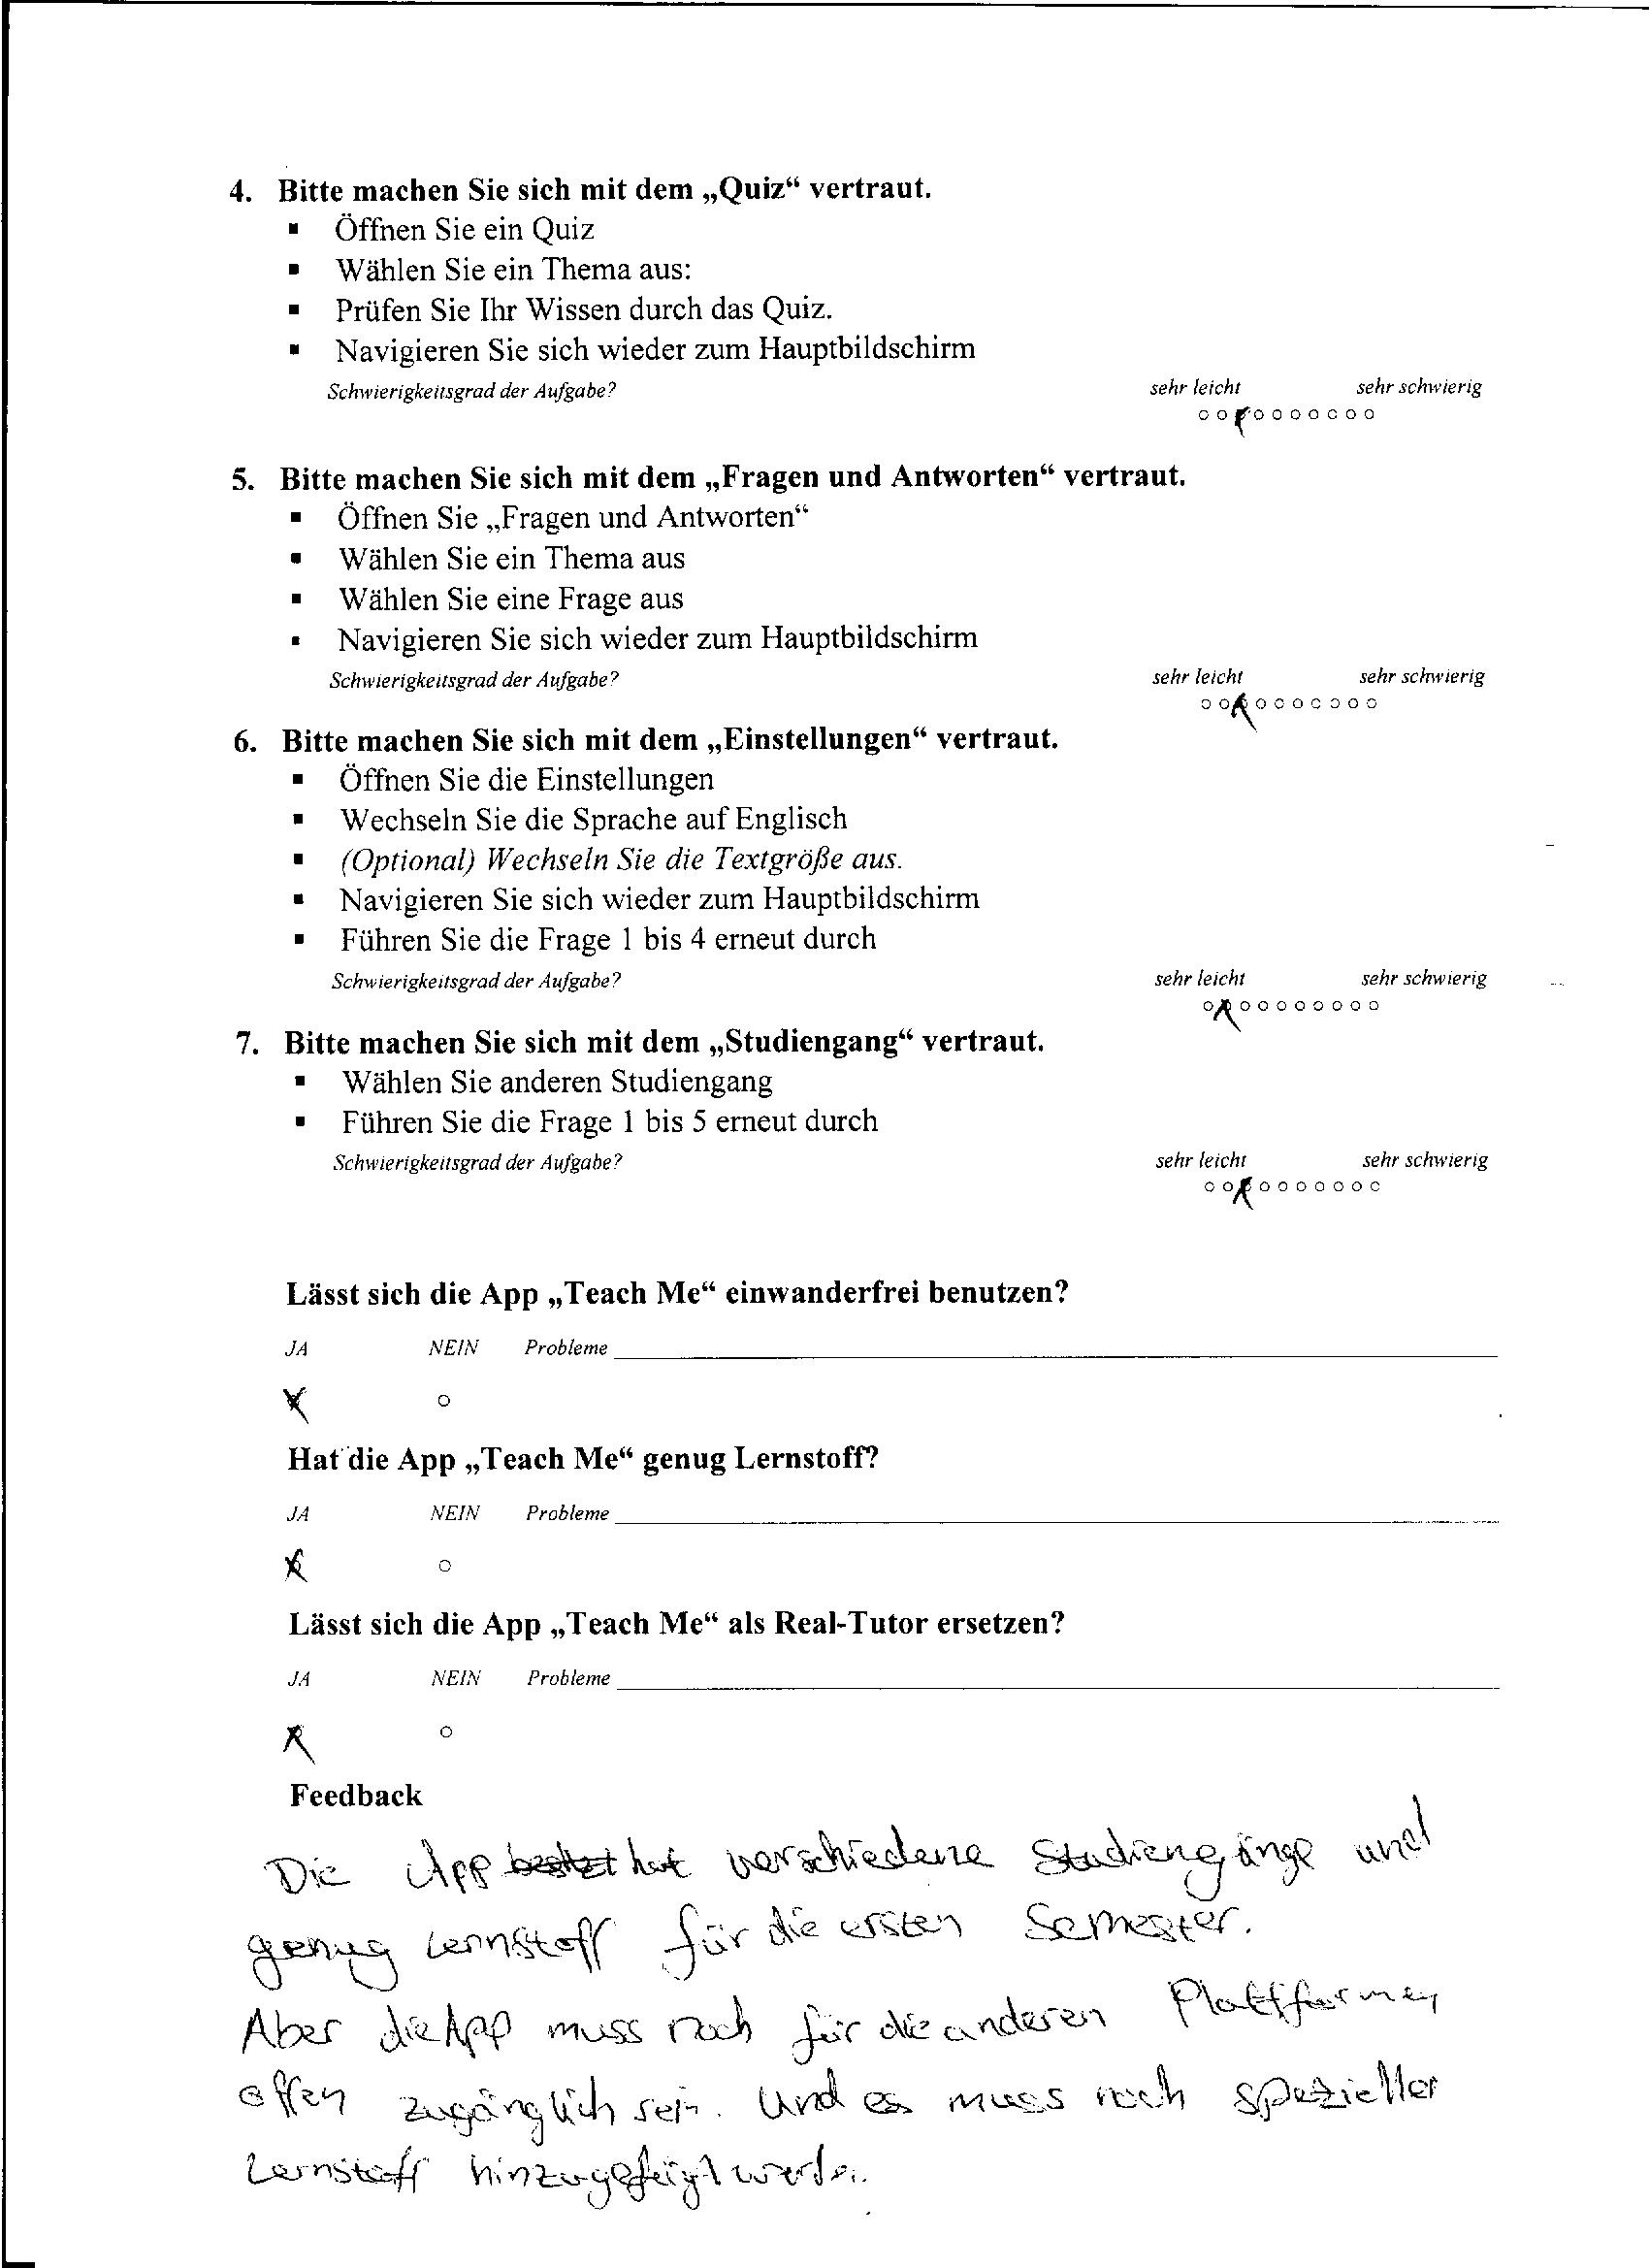 4. Bitte machen Sie sich mit dem „Quiz“ vertraut.
▪ Öffnen Sie ein Quiz
▪ Wählen Sie ein Thema aus:
▪ Prüfen Sie Ihr Wissen durch das Quiz.
▪ Navigieren Sie sich wieder zum Hauptbildschirm
Schwierigkeitsgrad der Aufgabe? sehr leicht sehr schwierig
5. Bitte machen Sie sich mit dem „Fragen und Antworten“ vertraut.
▪ Öffnen Sie „Fragen und Antworten“
▪ Wählen Sie ein Thema aus
▪ Wählen Sie eine Frage aus
▪ Navigieren Sie sich wieder zum Hauptbildschirm
Schwierigkeitsgrad der Aufgabe? sehr leicht sehr schwierig
6. Bitte machen Sie sich mit dem „Einstellungen“ vertraut.
▪ Öffnen Sie die Einstellungen
▪ Wechseln Sie die Sprache auf Englisch
▪ (Optional) Wechseln Sie die Textgröße aus.
▪ Navigieren Sie sich wieder zum Hauptbildschirm
▪ Führen Sie die Frage 1 bis 4 erneut durch
Schwierigkeitsgrad der Aufgabe? sehr leicht sehr schwierig
7. Bitte machen Sie sich mit dem „Studiengang“ vertraut.
▪ Wählen Sie anderen Studiengang
▪ Führen Sie die Frage 1 bis 5 erneut durch
Schwierigkeitsgrad der Aufgabe? sehr leicht sehr schwierig
Lässt sich die App „Teach Me“ einwanderfrei benutzen?
JA NEIN Probleme
Hat die App „Teach Me“ genug Lernstoff?
JA NEIN Probleme
Lässt sich die App „Teach Me“ als Real-Tutor ersetzen?
JA NEIN Probleme
Feedback
Die App hat verschiedene Studiengänge und
genug Lernstoff für die ersten Semester.
Aber die App muss noch für die anderen Plattformen
offen zugänglich sein. Und es muss noch spezieller
Lernstoff hinzugefügt werden.